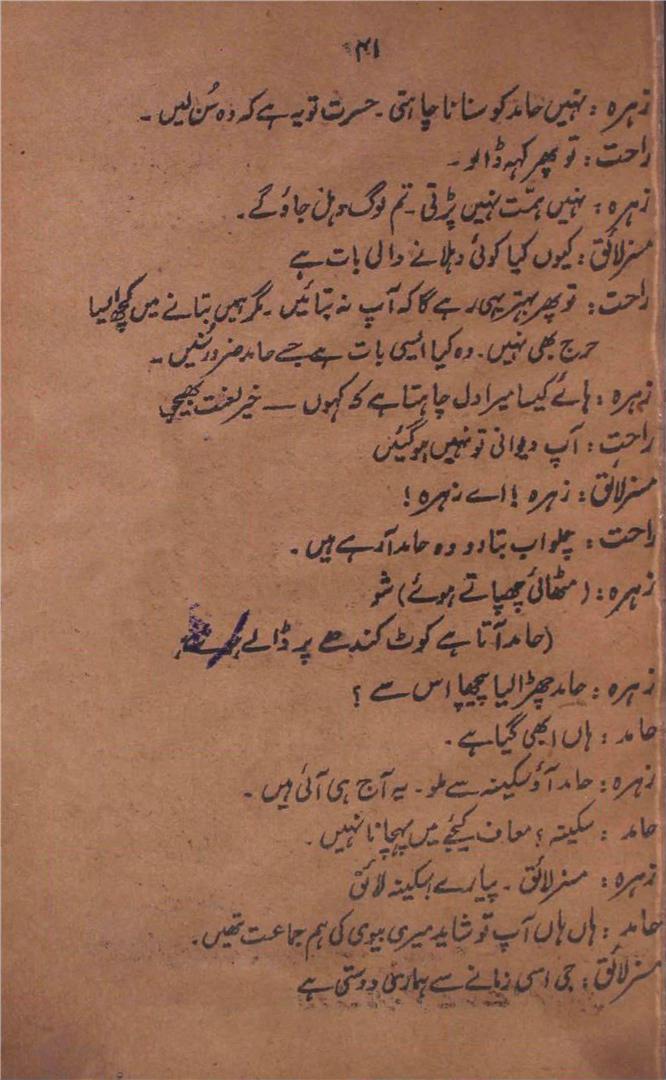 ۴۱
زہرہ : نہیں حامد کو سنانا چاہتی ۔ حسرت تو یہ ہے کہ وہ سُن لیں ۔
راحت : تو پھر کہہ ڈالو ۔
زہرہ : نہیں ہمّت نہیں پڑتی ۔ تم لوگ دہل جاؤ گے ۔
مسز لائق : کیوں کیا کوئی دہلانے والی بات ہے
راحت : تو پھر بہتر یہی رہے گا کہ آپ نہ بتائیں ۔ مگر ہمیں بتانے میں کچھ ایسا
حرج بھی نہیں ۔ وہ کیا ایسی بات ہے جسے حامد ضرور سُنیں ۔
زہرہ : ہائے کیسا میرا دل چاہتا ہے کہ کہوں — خیر لعنت بھیجی
راحت : آپ دیوانی تو نہیں ہو گئیں
مسز لائق : زہرہ ! اے زہرہ !
راحت : چلو اب بتا دو وہ حامد آ رہے ہیں ۔
زہرہ : (مٹھائی چھپاتے ہوئے) شو
(حامد آتا ہے کوٹ کندھے پر ڈالے
زہرہ : حامد چھڑا لیا پیچھا اس سے ؟
حامد : ہاں ابھی گیا ہے ۔
زہرہ : حامد آؤ سکینہ سے ملو ۔ یہ آج ہی آئی ہیں ۔
حامد : سکینہ ؟ معاف کیجئے میں پہچانا نہیں ۔
زہرہ : مسز لائق ۔ پیارے سکینہ لائق
حامد : ہاں ہاں آپ تو شاید میری بیوی کی ہم جماعت تھیں ۔
مسز لائق : جی اسی زمانے سے ہماری دوستی ہے